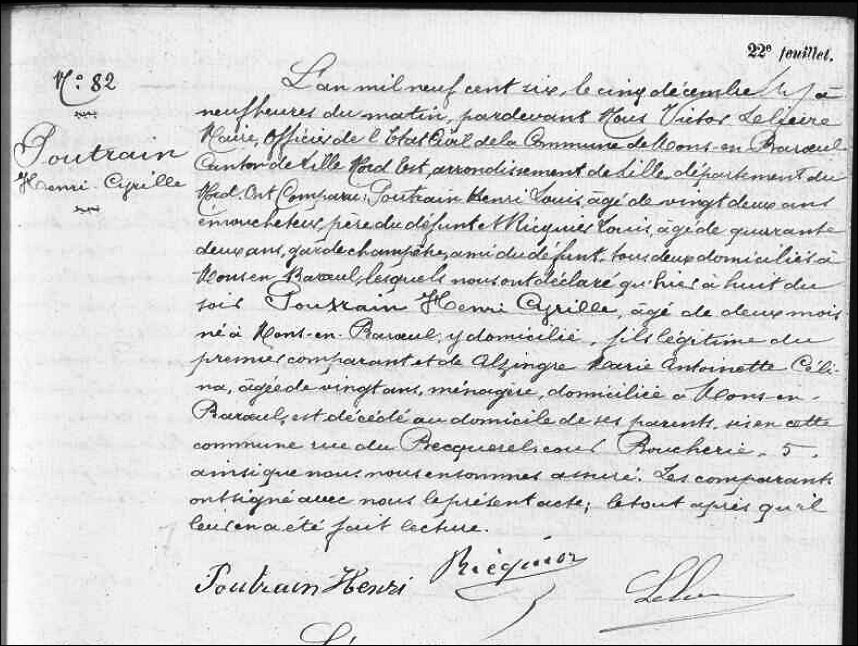 22e feuillet.
No. 82
Poutrain
Henri Cyrille
L'an mil neuf cent six, le cinq décembre à
neuf heures du matin, pardevant Nous Victor Lelieire
Maire, Officier de l'Etat Civil de la Commune de Mons-en-Barœul
Canton de Lille Nord Est, arrondissement de Lille, département du
Nord. Ont Comparu: Poutrain Henri Louis, âgé de vingt deux ans
émoucheteur, père du défunt et Ricquier Louis, âgé de quarante
deux ans, garde champêtre, ami du défunt, tous deux domiciliés à
Mons en Barœul, lesquels nous ont déclaré qu'hier à huit du
soir Poutrain Henri Cyrille, âgé de deux mois
né à Mons-en-Barœul, y domicilié, fils légitime du
premier comparant et de Alzingre Marie Antoinette Céli-
na, âgée de vingt ans, ménagère, domiciliée à Mons-en-
Barœul, est décédé au domicile de ses parents, sis en cette
commune rue du Becquerel, cour Boucherie, 5,
ainsi que nous nous en sommes assuré. Les comparants
ont signé avec nous le présent acte; le tout après qu'il
leur en a été fait lecture.
Poutrain Henri Ricquier